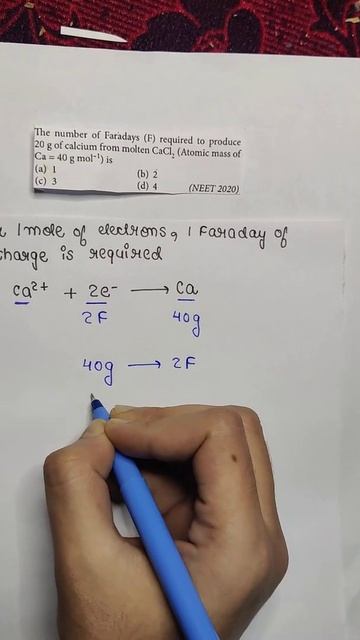 The number of Faradays (F) required to produce
20 g of calcium from molten CaCl₂ (Atomic mass of
Ca = 40 g mol⁻¹) is
(a) 1 (b) 2
(c) 3 (d) 4 (NEET 2020)
1mole of electrons, 1 Faraday of
charge is required
Ca²⁺ + 2e⁻ ⟶ Ca
2F 40g
40g ⟶ 2F